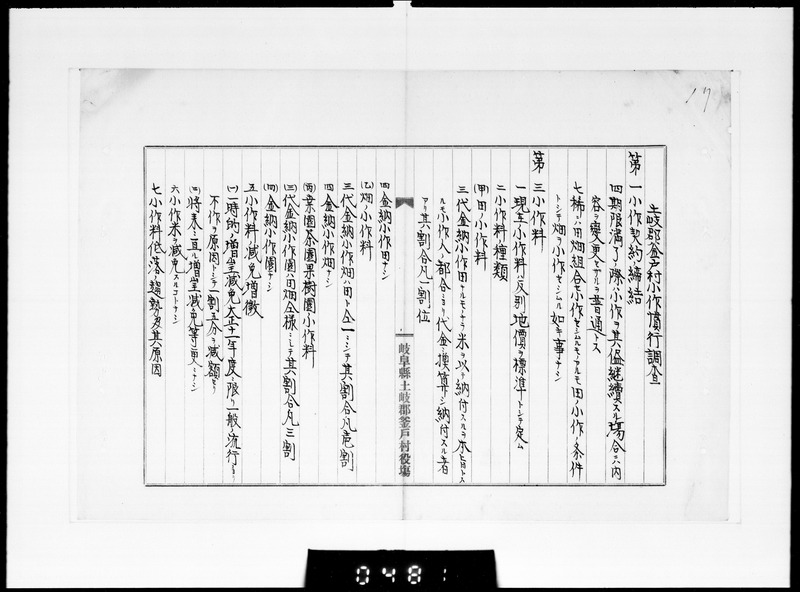 17
土岐郡釜戸村小作慣行調査
第一 小作契約締結
四 期限満了ノ際小作ヲ其侭継続スル場合ハ内
容ヲ変更セザルヲ普通トス
七 稀ニハ田畑組合小作セシムルモノアルモ田ノ小作ノ条件
トシテ畑ヲ小作セシムル如キ事ナシ
第三 小作料
一 現在小作料ハ反別地價ヲ標準トシテ定ム
二 小作料種類
(甲)田ノ小作料
三 代金納小作田ナルモノナラ米ヲ以テ納付スルヲ本旨トス
ルモ小作人ノ都合ニヨリ代金ニ換算シ納付スル者
アリ其割合凡一割位
岐阜縣土岐郡釜戸村役場
四 金納小作田ナシ
(乙)畑ノ小作料
三 代金納小作畑ハ田ト仝一ニシテ其割合凡壱割
四 金納小作畑ナシ
(丙)桑園茶園果樹園小作料
(三)代金納小作園ハ田畑仝様ニシテ其割合凡三割
(四)金納小作園ナシ
五 小作料ノ減免増徴
(一)一時的ノ増量減免大正十一年度ニ限リ一般ニ流行セリ
不作ヲ原因トシテ一割五分ヲ減額セリ
(四)将来ニ亘ル増量減免等更ニナシ
六 小作米ヲ減免スルコトナシ
七 小作料低落ノ趨勢多其原因
0481